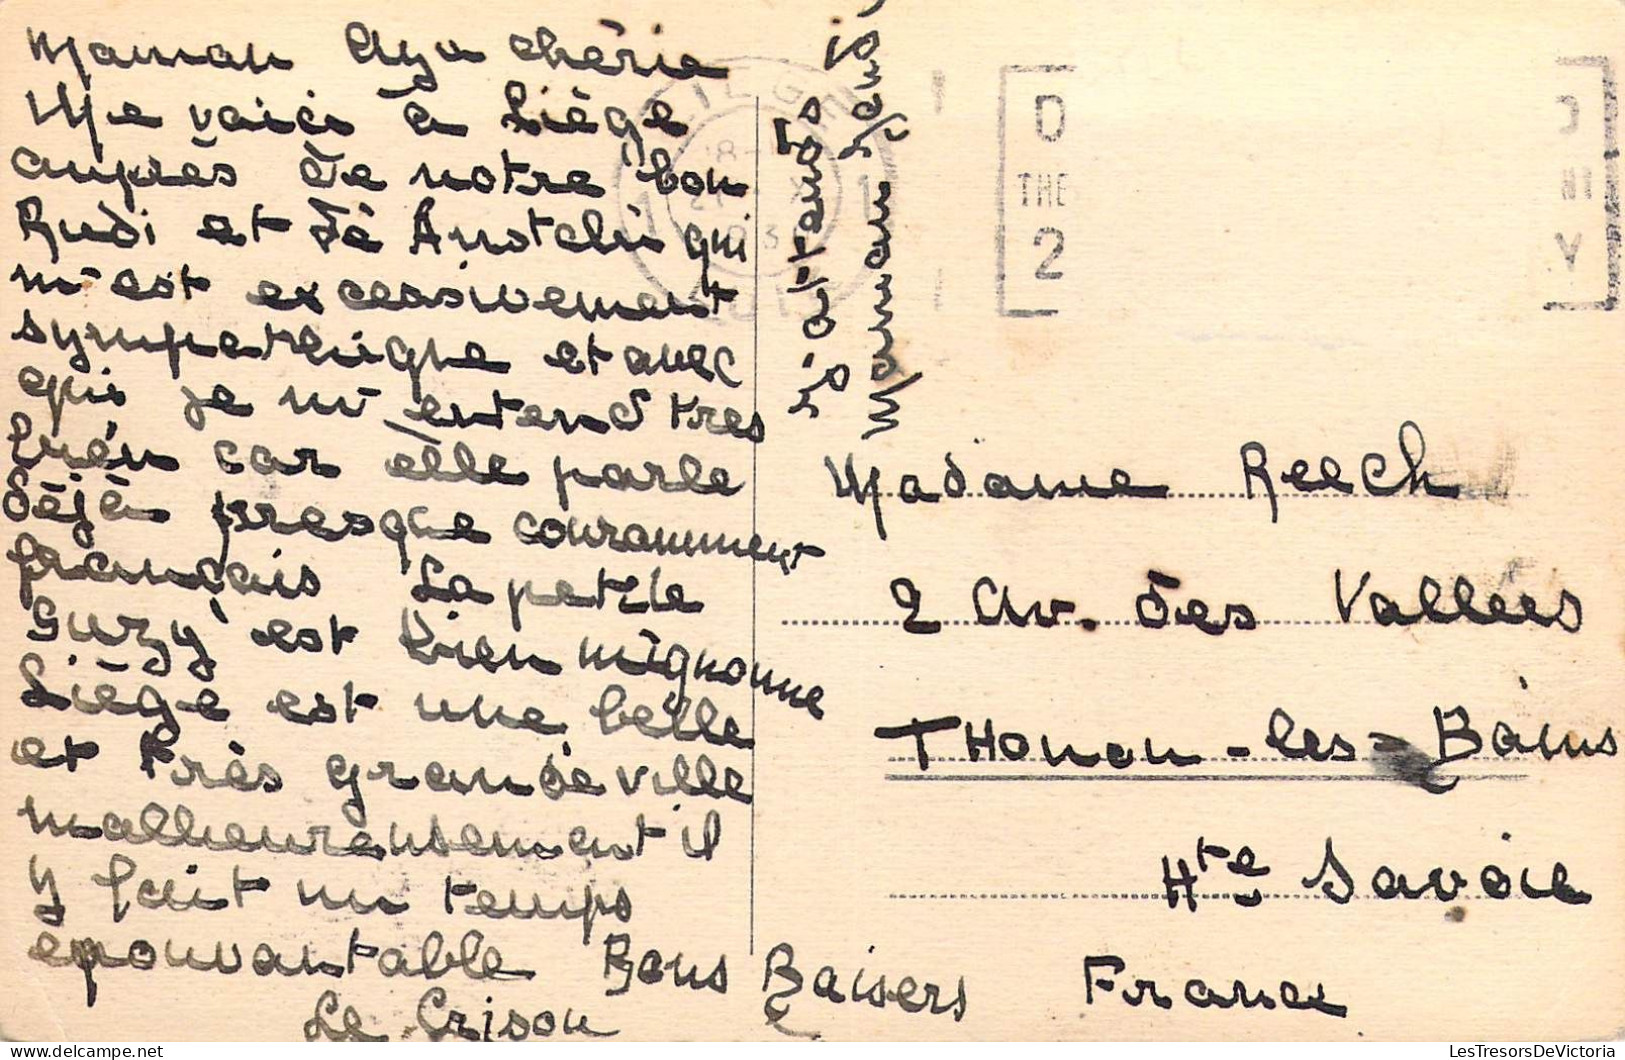 Maman Aya chérie
Me voici à Liège
auprès de notre bon
Rudi et de qui
m'est excessivement
sympathique et avec
qui je m'entend très
bien car elle parle
déjà presque couramment
français La petite
Suzy est bien mignonne
Liège est une belle
et très grande ville
malheureusement il
y fait un temps
épouvantable Bons Baisers
Le Grison
à tous
Maman
LIEGE 1
LUIK 1
D
THE
2
V
Madame Reech
2 Av. des Vallées
THonon-les-Bains
Hte Savoie
France
LesTresorsDeVictoria